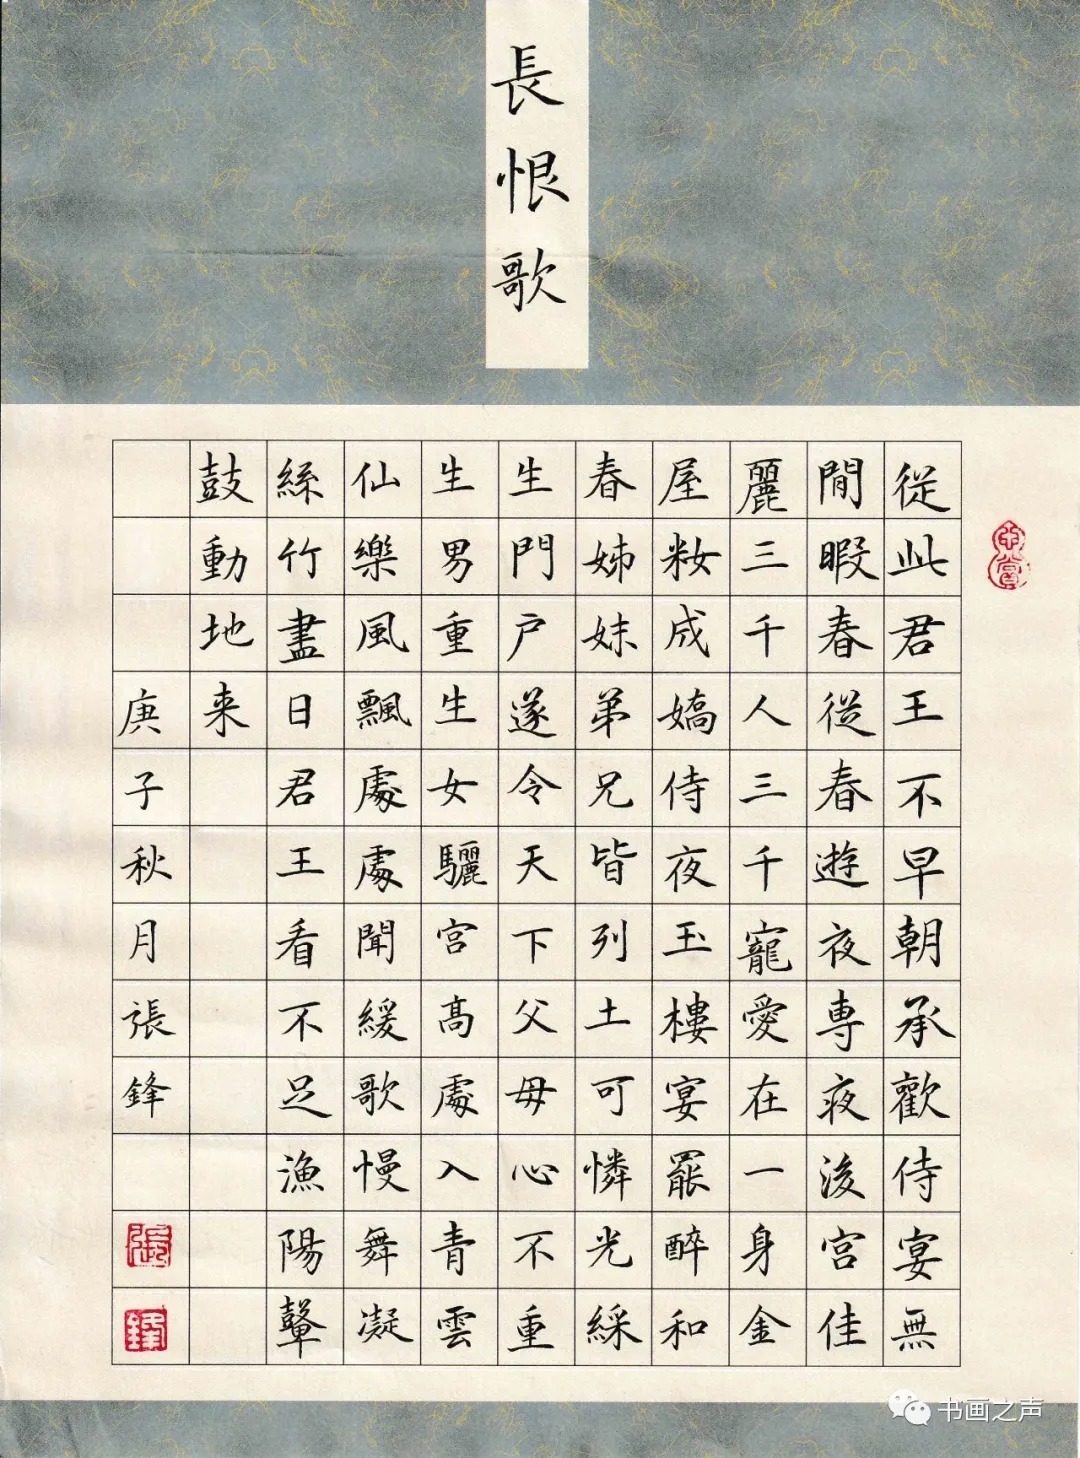 長恨歌
從此君王不早朝承歡侍宴無
閒暇春從春遊夜專夜後宮佳
麗三千人三千寵愛在一身金
屋粧成嬌侍夜玉樓宴罷醉和
春姊妹弟兄皆列土可憐光綵
生門戶遂令天下父母心不重
生男重生女驪宮高處入青雲
仙樂風飄處處聞緩歌慢舞凝
絲竹盡日君王看不足漁陽鼙
鼓動地来
庚子秋月張鋒
張
鋒
书画之声